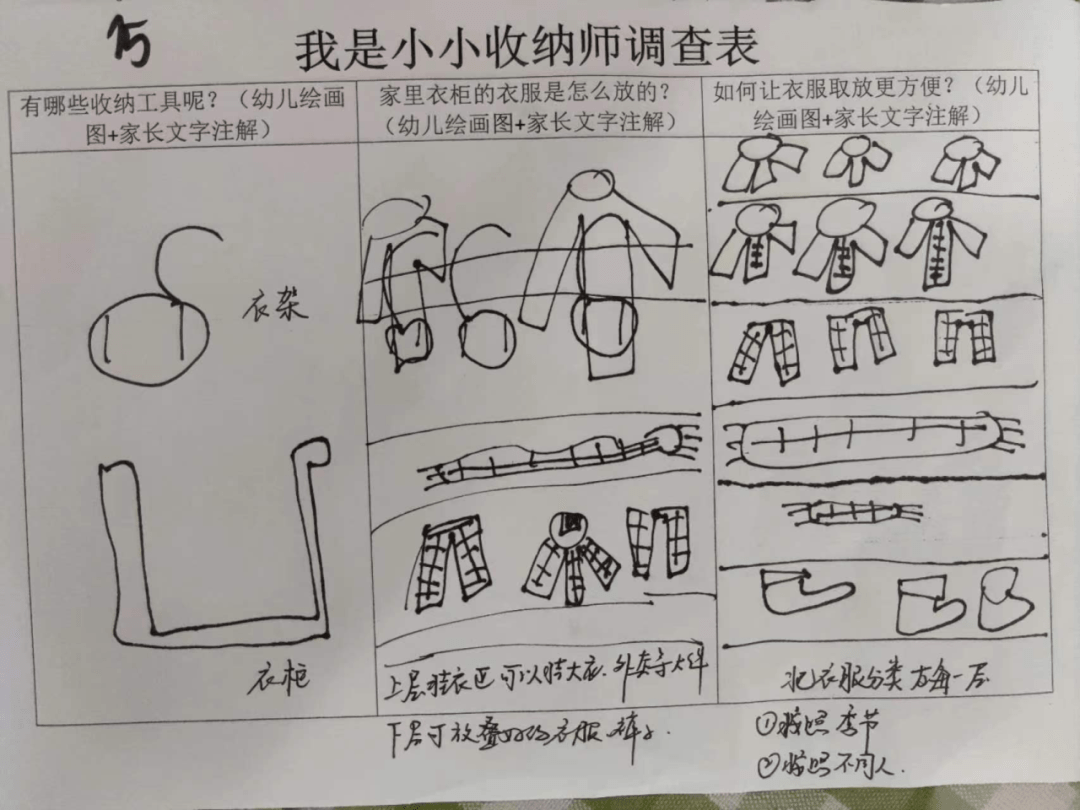 我是小小收纳师调查表
有哪些收纳工具呢？（幼儿绘画
图+家长文字注解）
家里衣柜的衣服是怎么放的？
（幼儿绘画图+家长文字注解）
如何让衣服取放更方便？（幼儿
绘画图+家长文字注解）
衣架
衣柜
上层挂衣区可以挂大衣、外套等大件
下层可放叠好的衣服、裤子.
把衣服分类放每一层
①按照季节
②按照不同人.